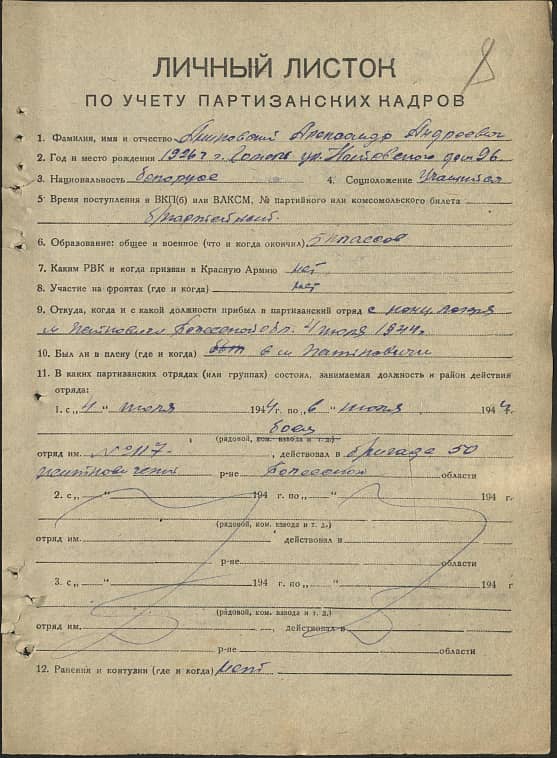 ЛИЧНЫЙ ЛИСТОК
ПО УЧЕТУ ПАРТИЗАНСКИХ КАДРОВ
1. Фамилия, имя и отчество Александр Андреевич
2. Год и место рождения 1926 г. Гомель ул. дом 96
3. Национальность белорусс 4. Соцположение Учащийся
5 Время поступления в ВКП(б) или ВЛКСМ, № партийного или комсомольского билета
б/партейный.
6. Образование: общее и военное (что и когда окончил) 5 классов
7. Каким РВК и когда призван в Красную Армию нет
8. Участие на фронтах (где и когда) нет
9. Откуда, когда и с какой должности прибыл в партизанский отряд с конц. лагеря
м. Полесской обл. 4 июля 1944 г.
10. Был ли в плену (где и когда) был в м
11. В каких партизанских отрядах (или группах) состоял, занимаемая должность и район действия
отряда:
1. с „4" июля 1944 г. по „6" июля 1944 г.
боец
(рядовой, ком. взвода и т. д.)
отряд им. № 117 , действовал в бригаде 50
р-не Полесской области
2. с „ " 194 г. по „ " 194 г.
(рядовой, ком. взвода и т. д.)
отряд им. действовал в
р-не области
3. с „ " 194 г. по „ " 194 г
(рядовой, ком. взвода и т. д.)
отряд им. , действовал в
р-не области
12. Ранения и контузии (где и когда) нет